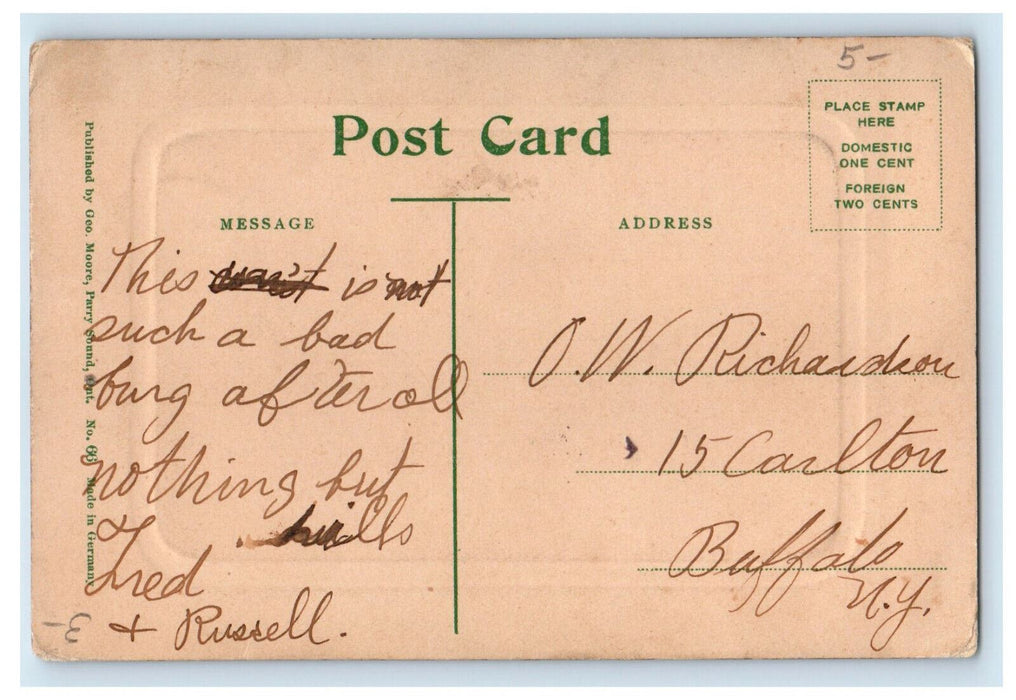 5-
Post Card
PLACE STAMP
HERE
DOMESTIC
ONE CENT
FOREIGN
TWO CENTS
MESSAGE
This wasn't is not
such a bad
burg after all
nothing but
hills
Fred
+ Russell.
ADDRESS
O.W. Richardson
15 Carlton
Buffalo
N.Y.
Published by Geo. Moore, Parry Sound, Ont. No. 66 Made in Germany
3-